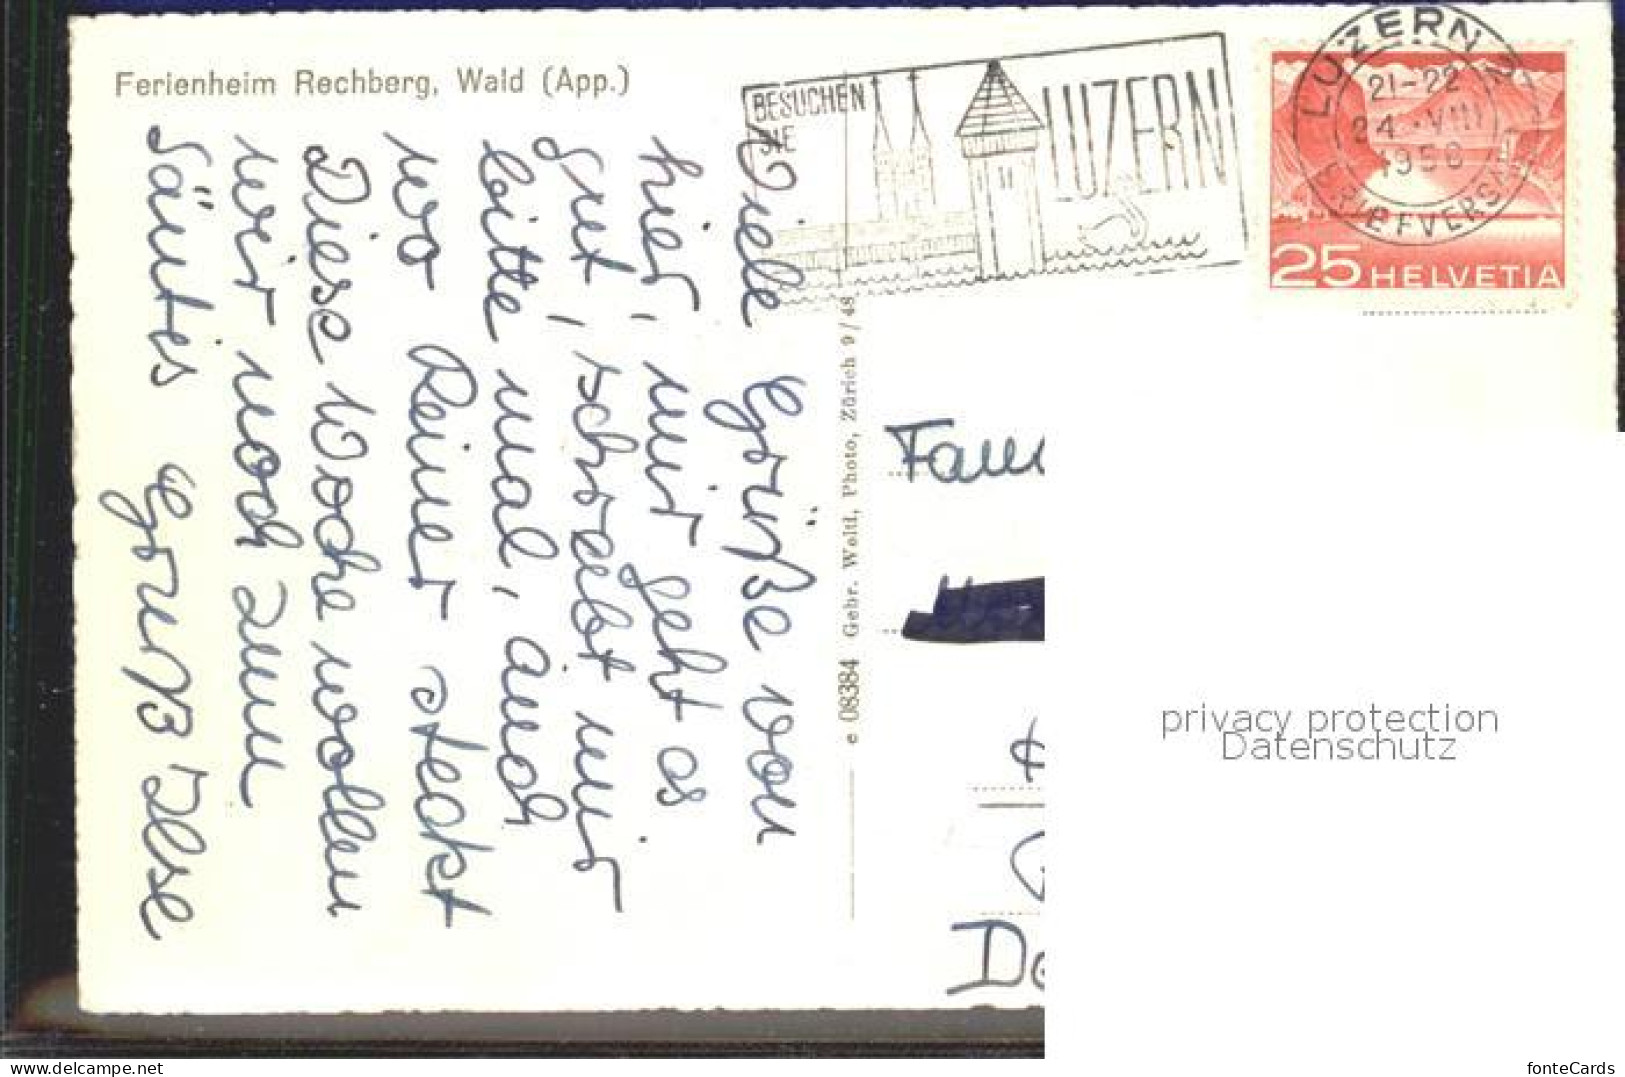 Ferienheim Rechberg, Wald (App.)
BESUCHEN
SIE
LUZERN
LUZERN
21-22
24.VIII
1950
BRIEFVERSAND
25 HELVETIA
Viele Grüße von
hier, mir geht es
gut, schreibt mir
bitte mal, auch
wo Reiner steckt
Diese Woche wollen
wir noch zum
Säntis Gruß Ilse
e 08384 Gebr. Wehli, Photo, Zürich 9/48
Fam
De
privacy protection
Datenschutz
www.delcampe.net
fonteCards